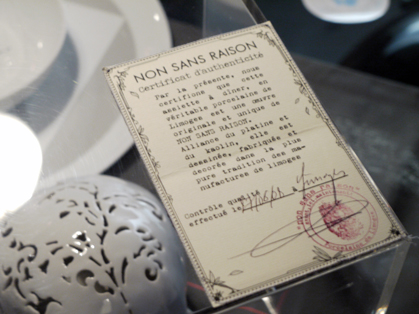 NON SANS RAISON
Certificat d'authenticité
Par la présente, nous
certifions que cette
assiette à dîner, en
véritable porcelaine de
Limoges est une œuvre
originale et unique de
NON SANS RAISON.
Alliance du platine et
du kaolin, elle est
dessinée, fabriquée et
décorée dans la plus
pure tradition des ma-
nufactures de limoges
Contrôle qualité
effectué le